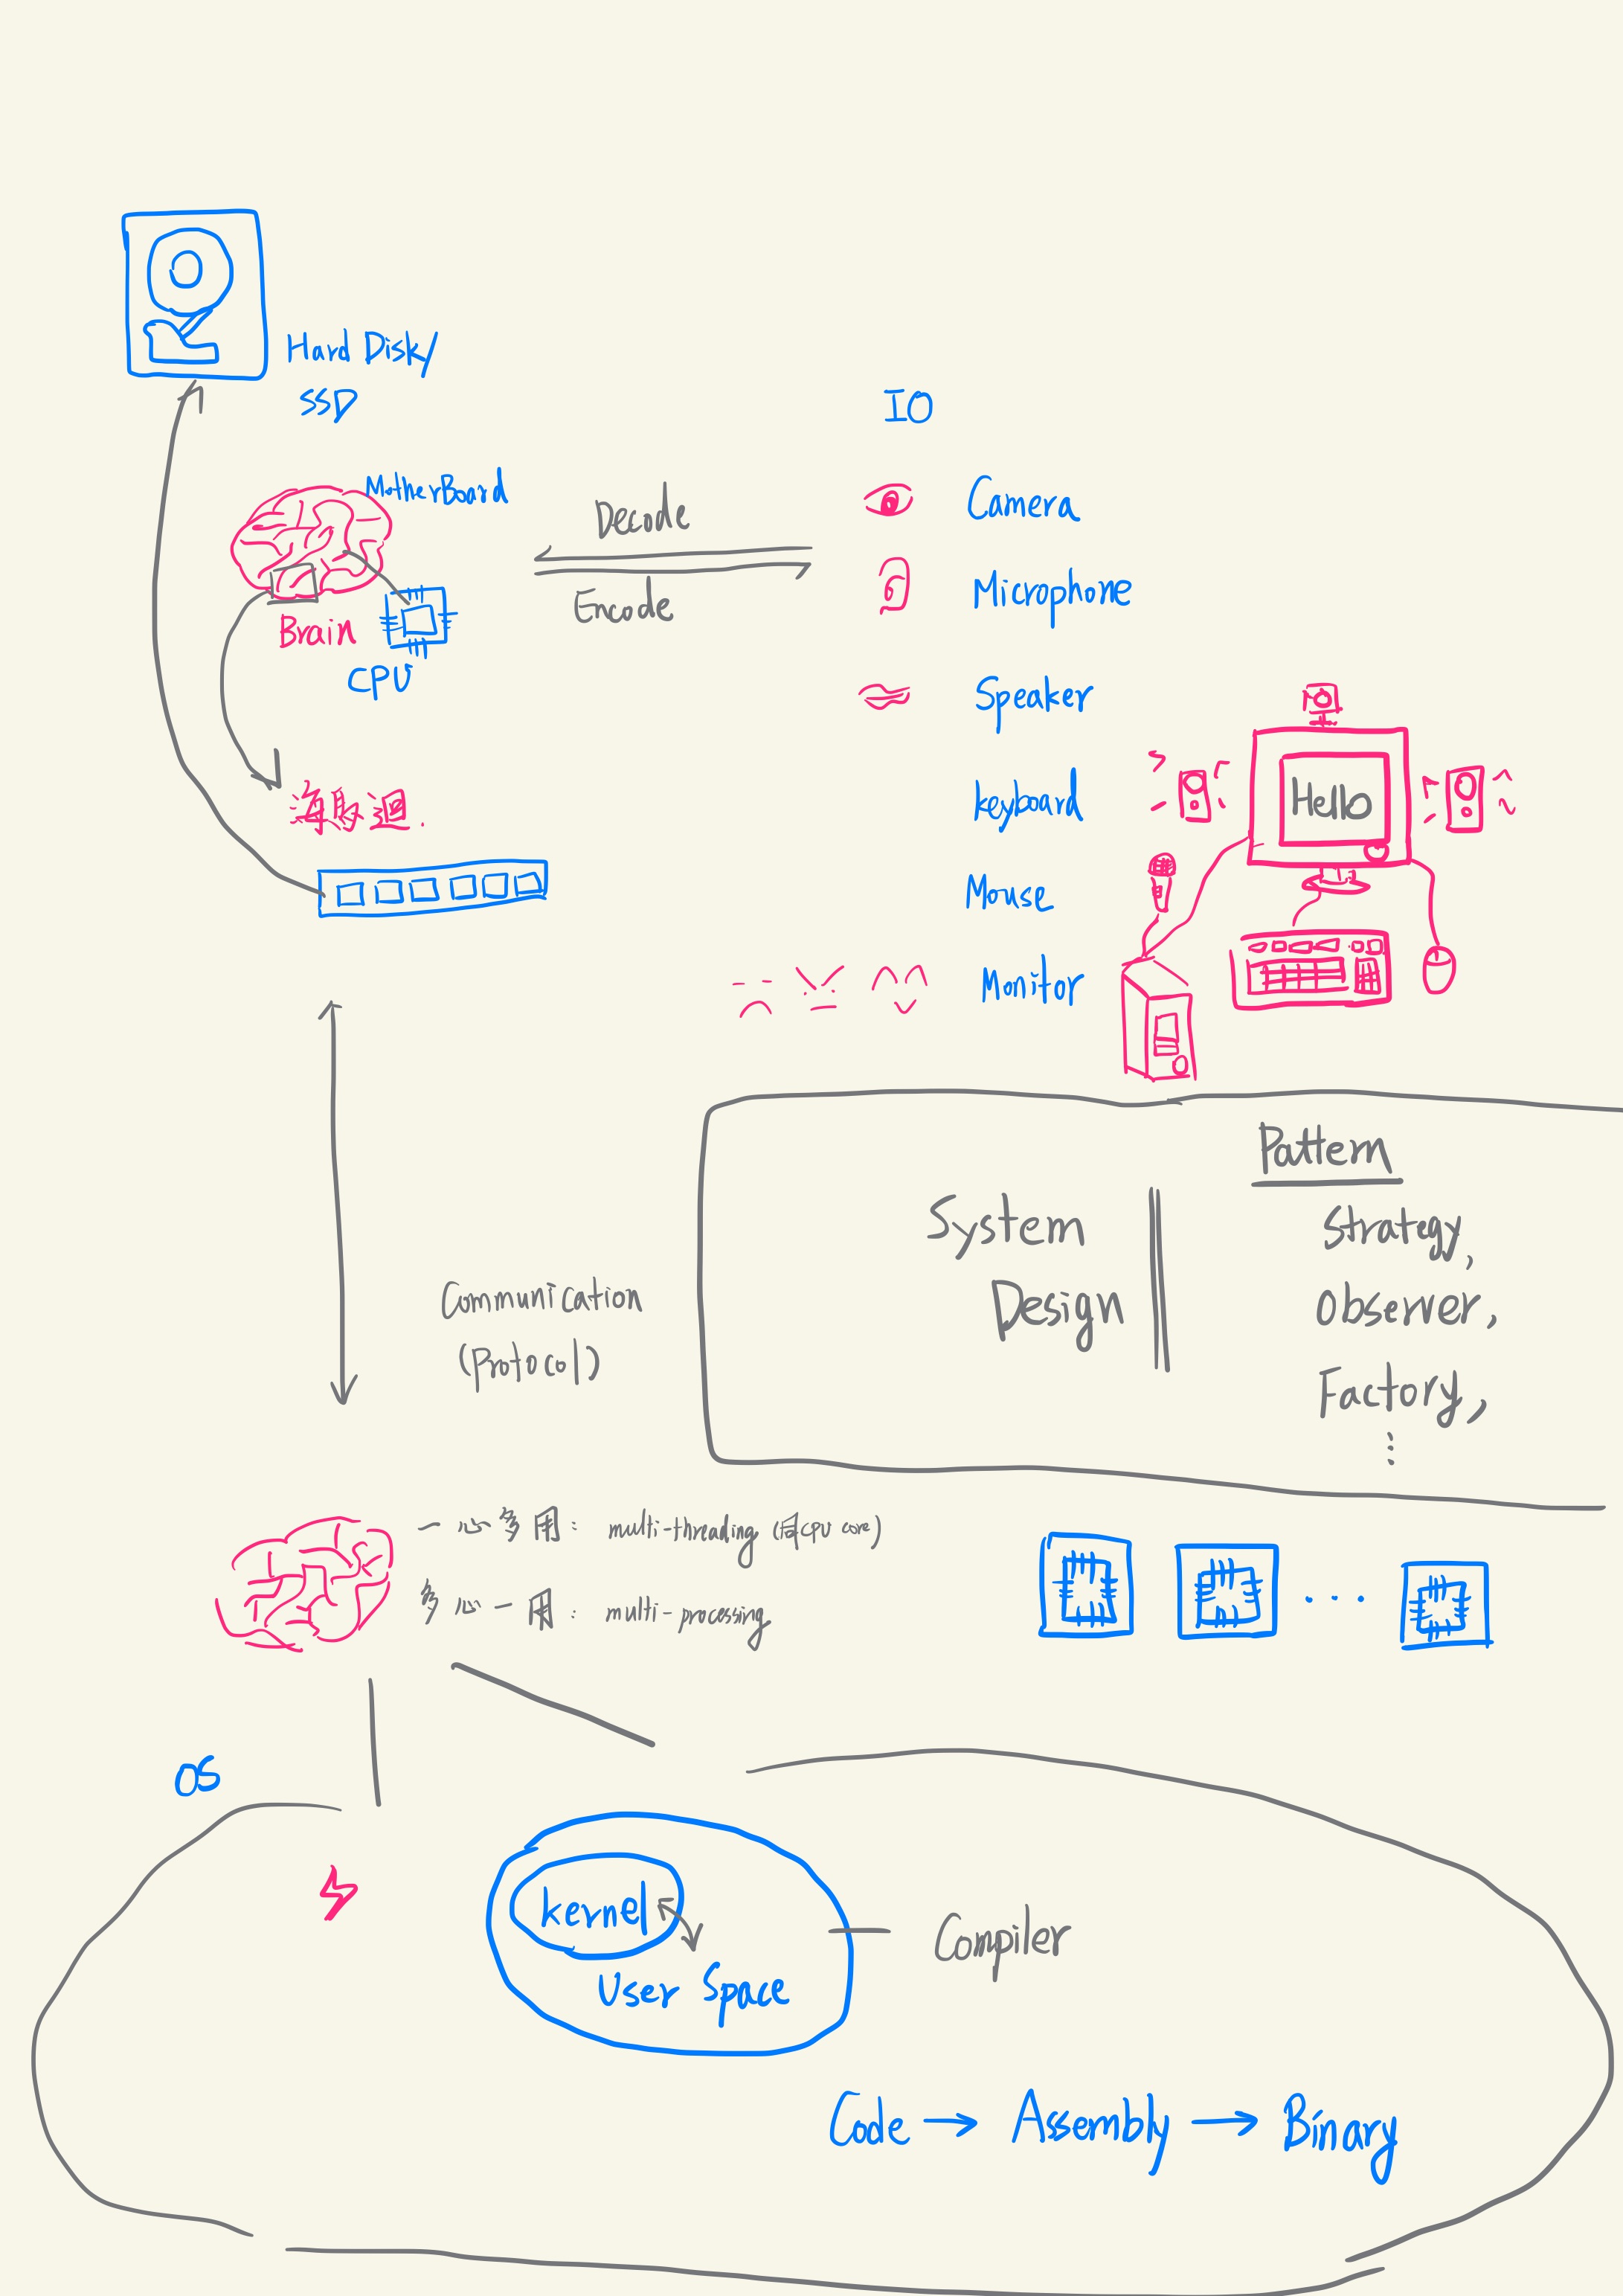 Hard Disk/
SSD
IO
MotherBoard
Decode
Encode
Brain
CPU
Camera
Microphone
Speaker
keyboard
Mouse
Monitor
Hello
海馬迴.
Communication
(Protocol)
System
Design
Pattern
Strategy,
Observer,
Factory,
⋮
一心多用: multi-threading (同CPU core)
多心一用: multi-processing
...
OS
kernel
User Space
Compiler
Code → Assembly → Binary